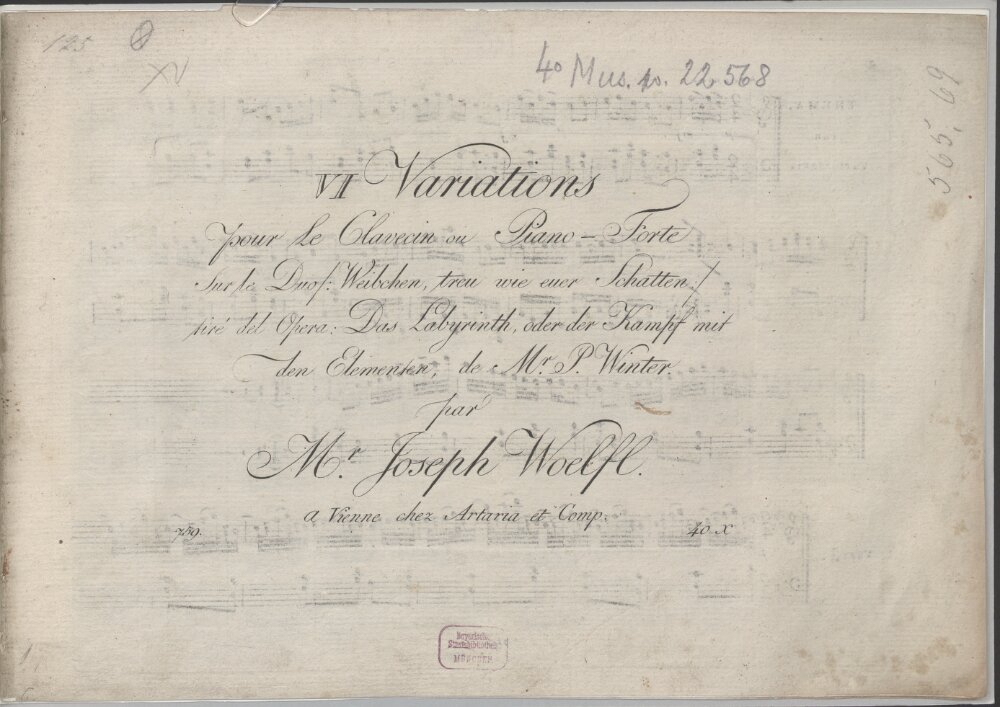 125
4° Mus. pr. 22 568
565, 69
VI Variations
pour le Clavecin ou Piano-Forte
Sur le Duo/: Weibchen, treu wie euer Schatten:/
tiré del Opera: Das Labyrinth, oder der Kampf mit
den Elementen, de Mr. P. Winter
par
Mr. Joseph Woelfl.
a Vienne chez Artaria et Comp.
789. 40 X
Bayerische
Staatsbibliothek
MÜNCHEN